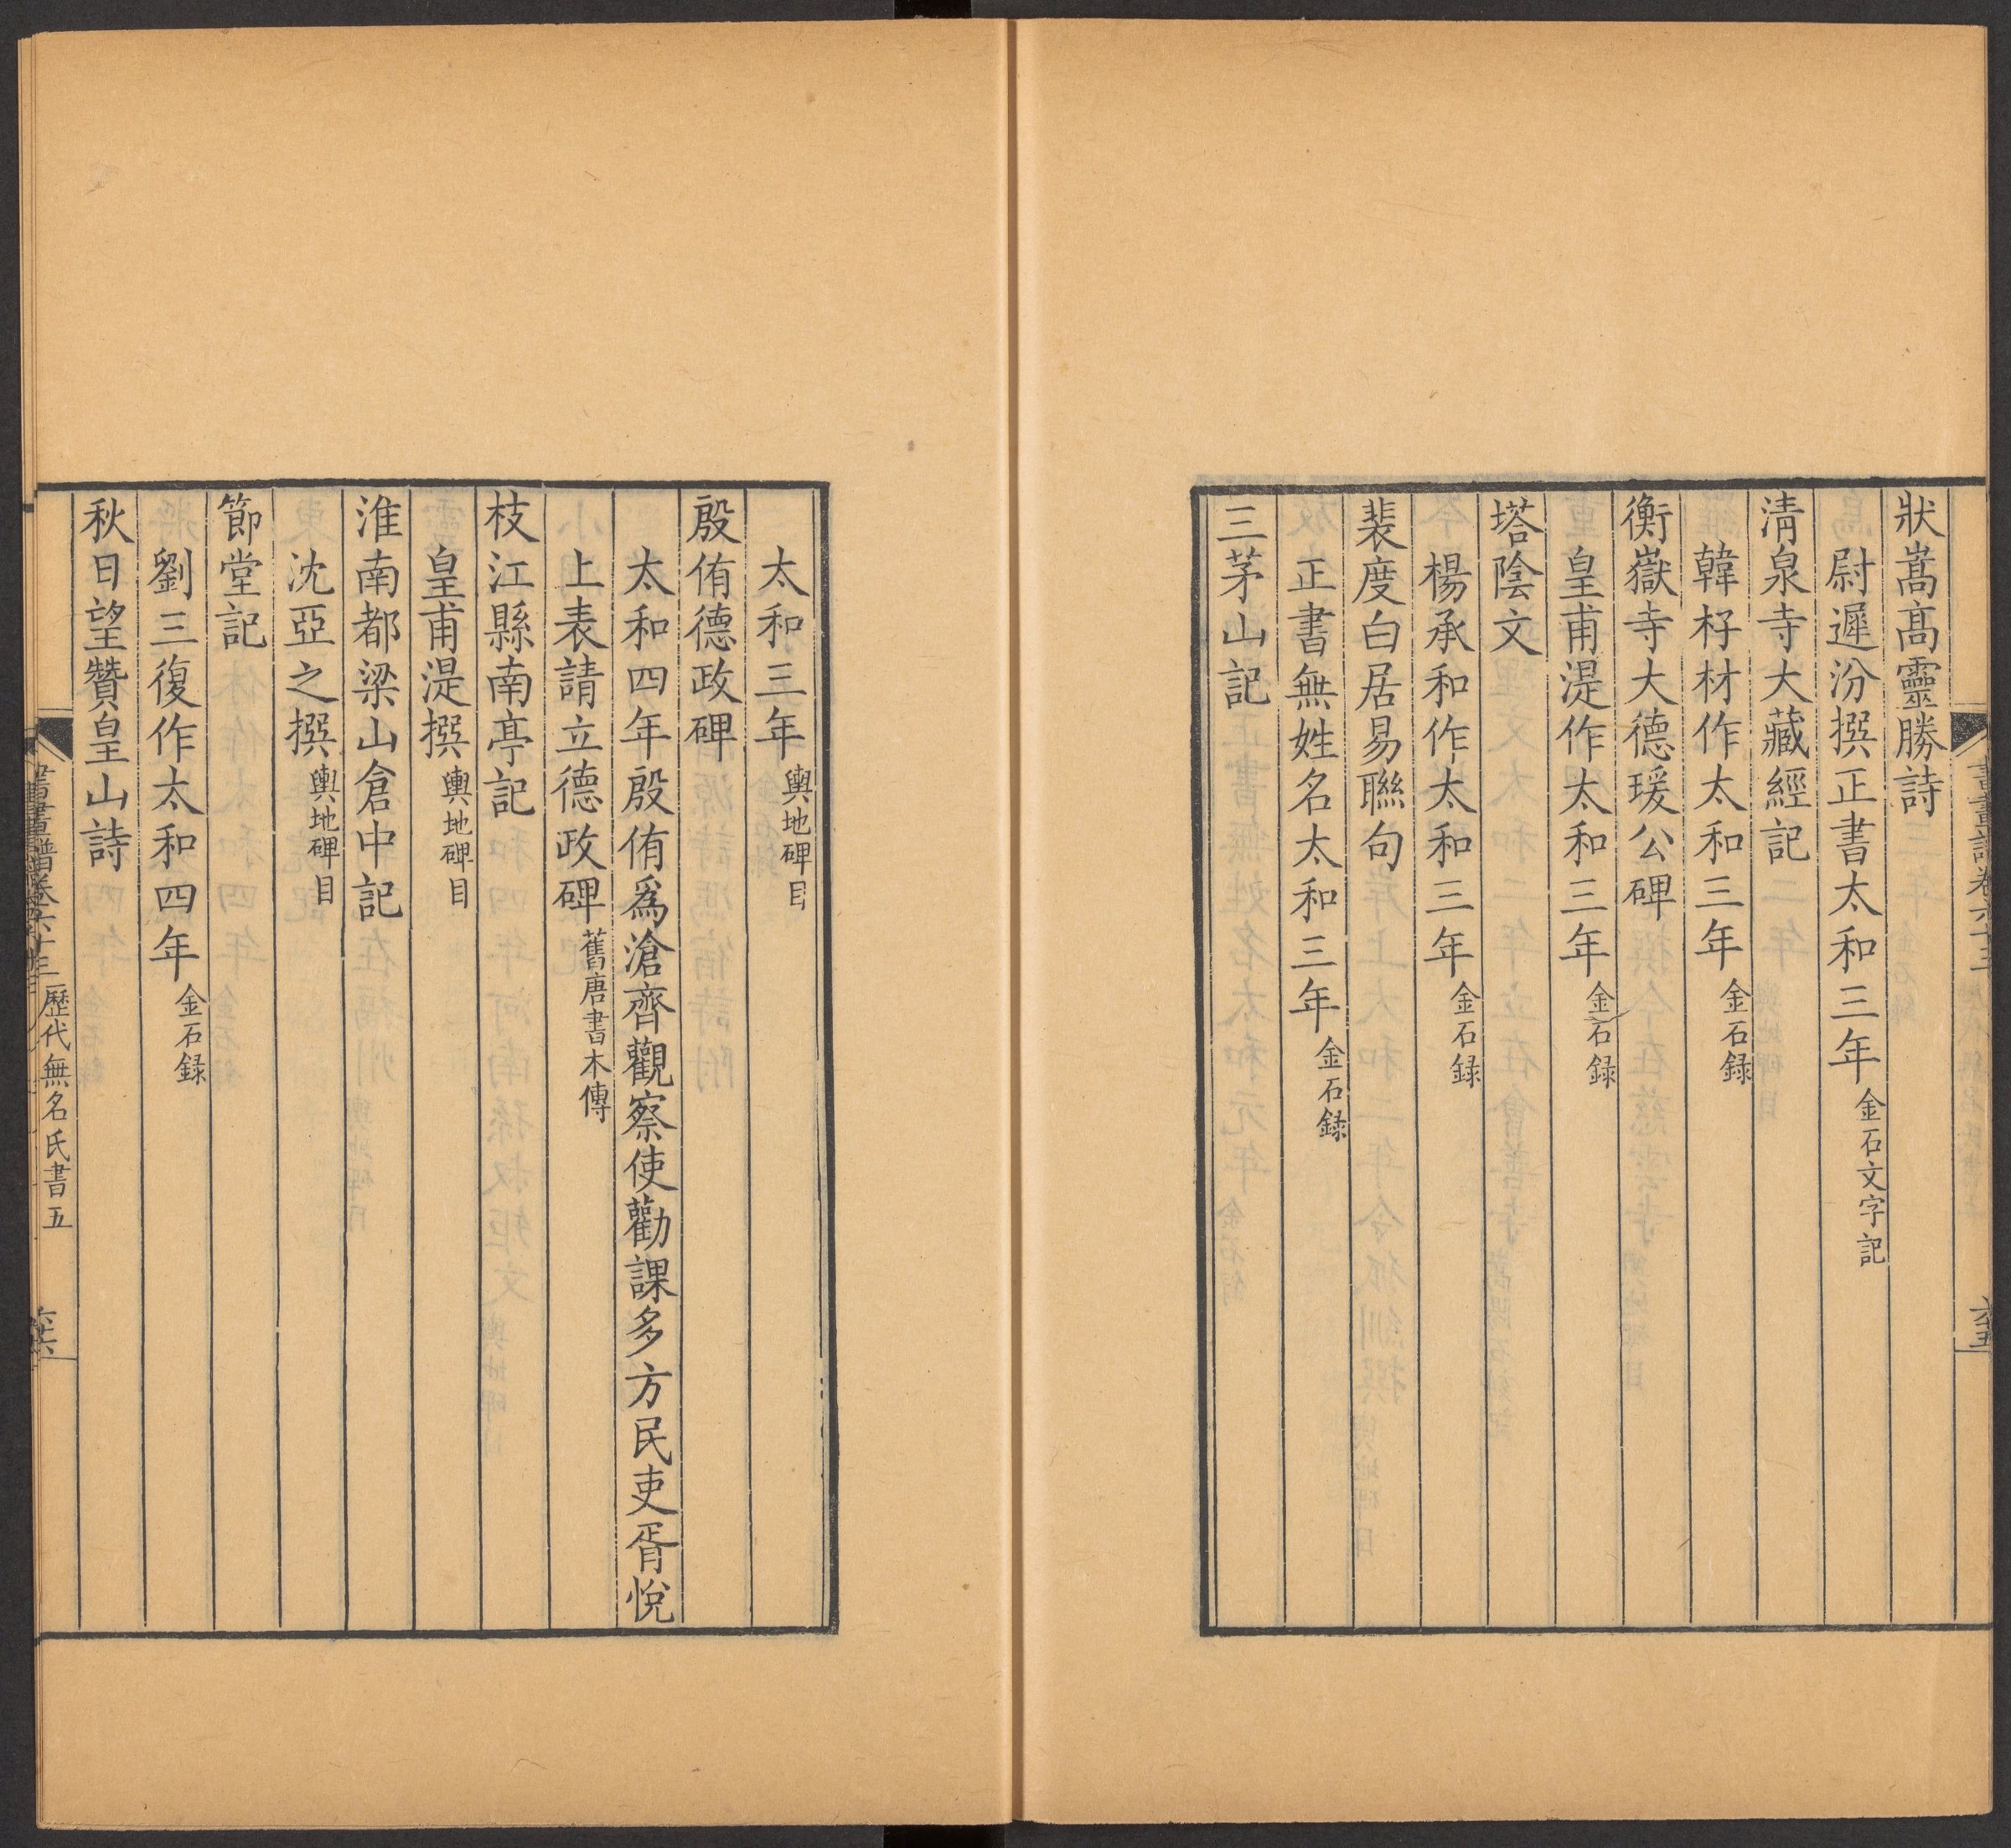 狀嵩高靈勝詩
尉遲汾撰正書太和三年金石文字記
清泉寺大藏經記
韓杍材作太和三年金石録
衡嶽寺大德瑗公碑
皇甫湜作太和三年金石録
塔陰文
楊承和作太和三年金石録
裴度白居易聯句
正書無姓名太和三年金石録
三茅山記
太和三年輿地碑目
殷侑德政碑
太和四年殷侑爲滄齊觀察使勸課多方民吏胥悅
上表請立德政碑舊唐書木傳
枝江縣南亭記
皇甫湜撰輿地碑目
淮南都梁山倉中記
沈亞之撰輿地碑目
節堂記
劉三復作太和四年金石録
秋日望贊皇山詩
書畫譜卷六十三 歷代無名氏書五 六六